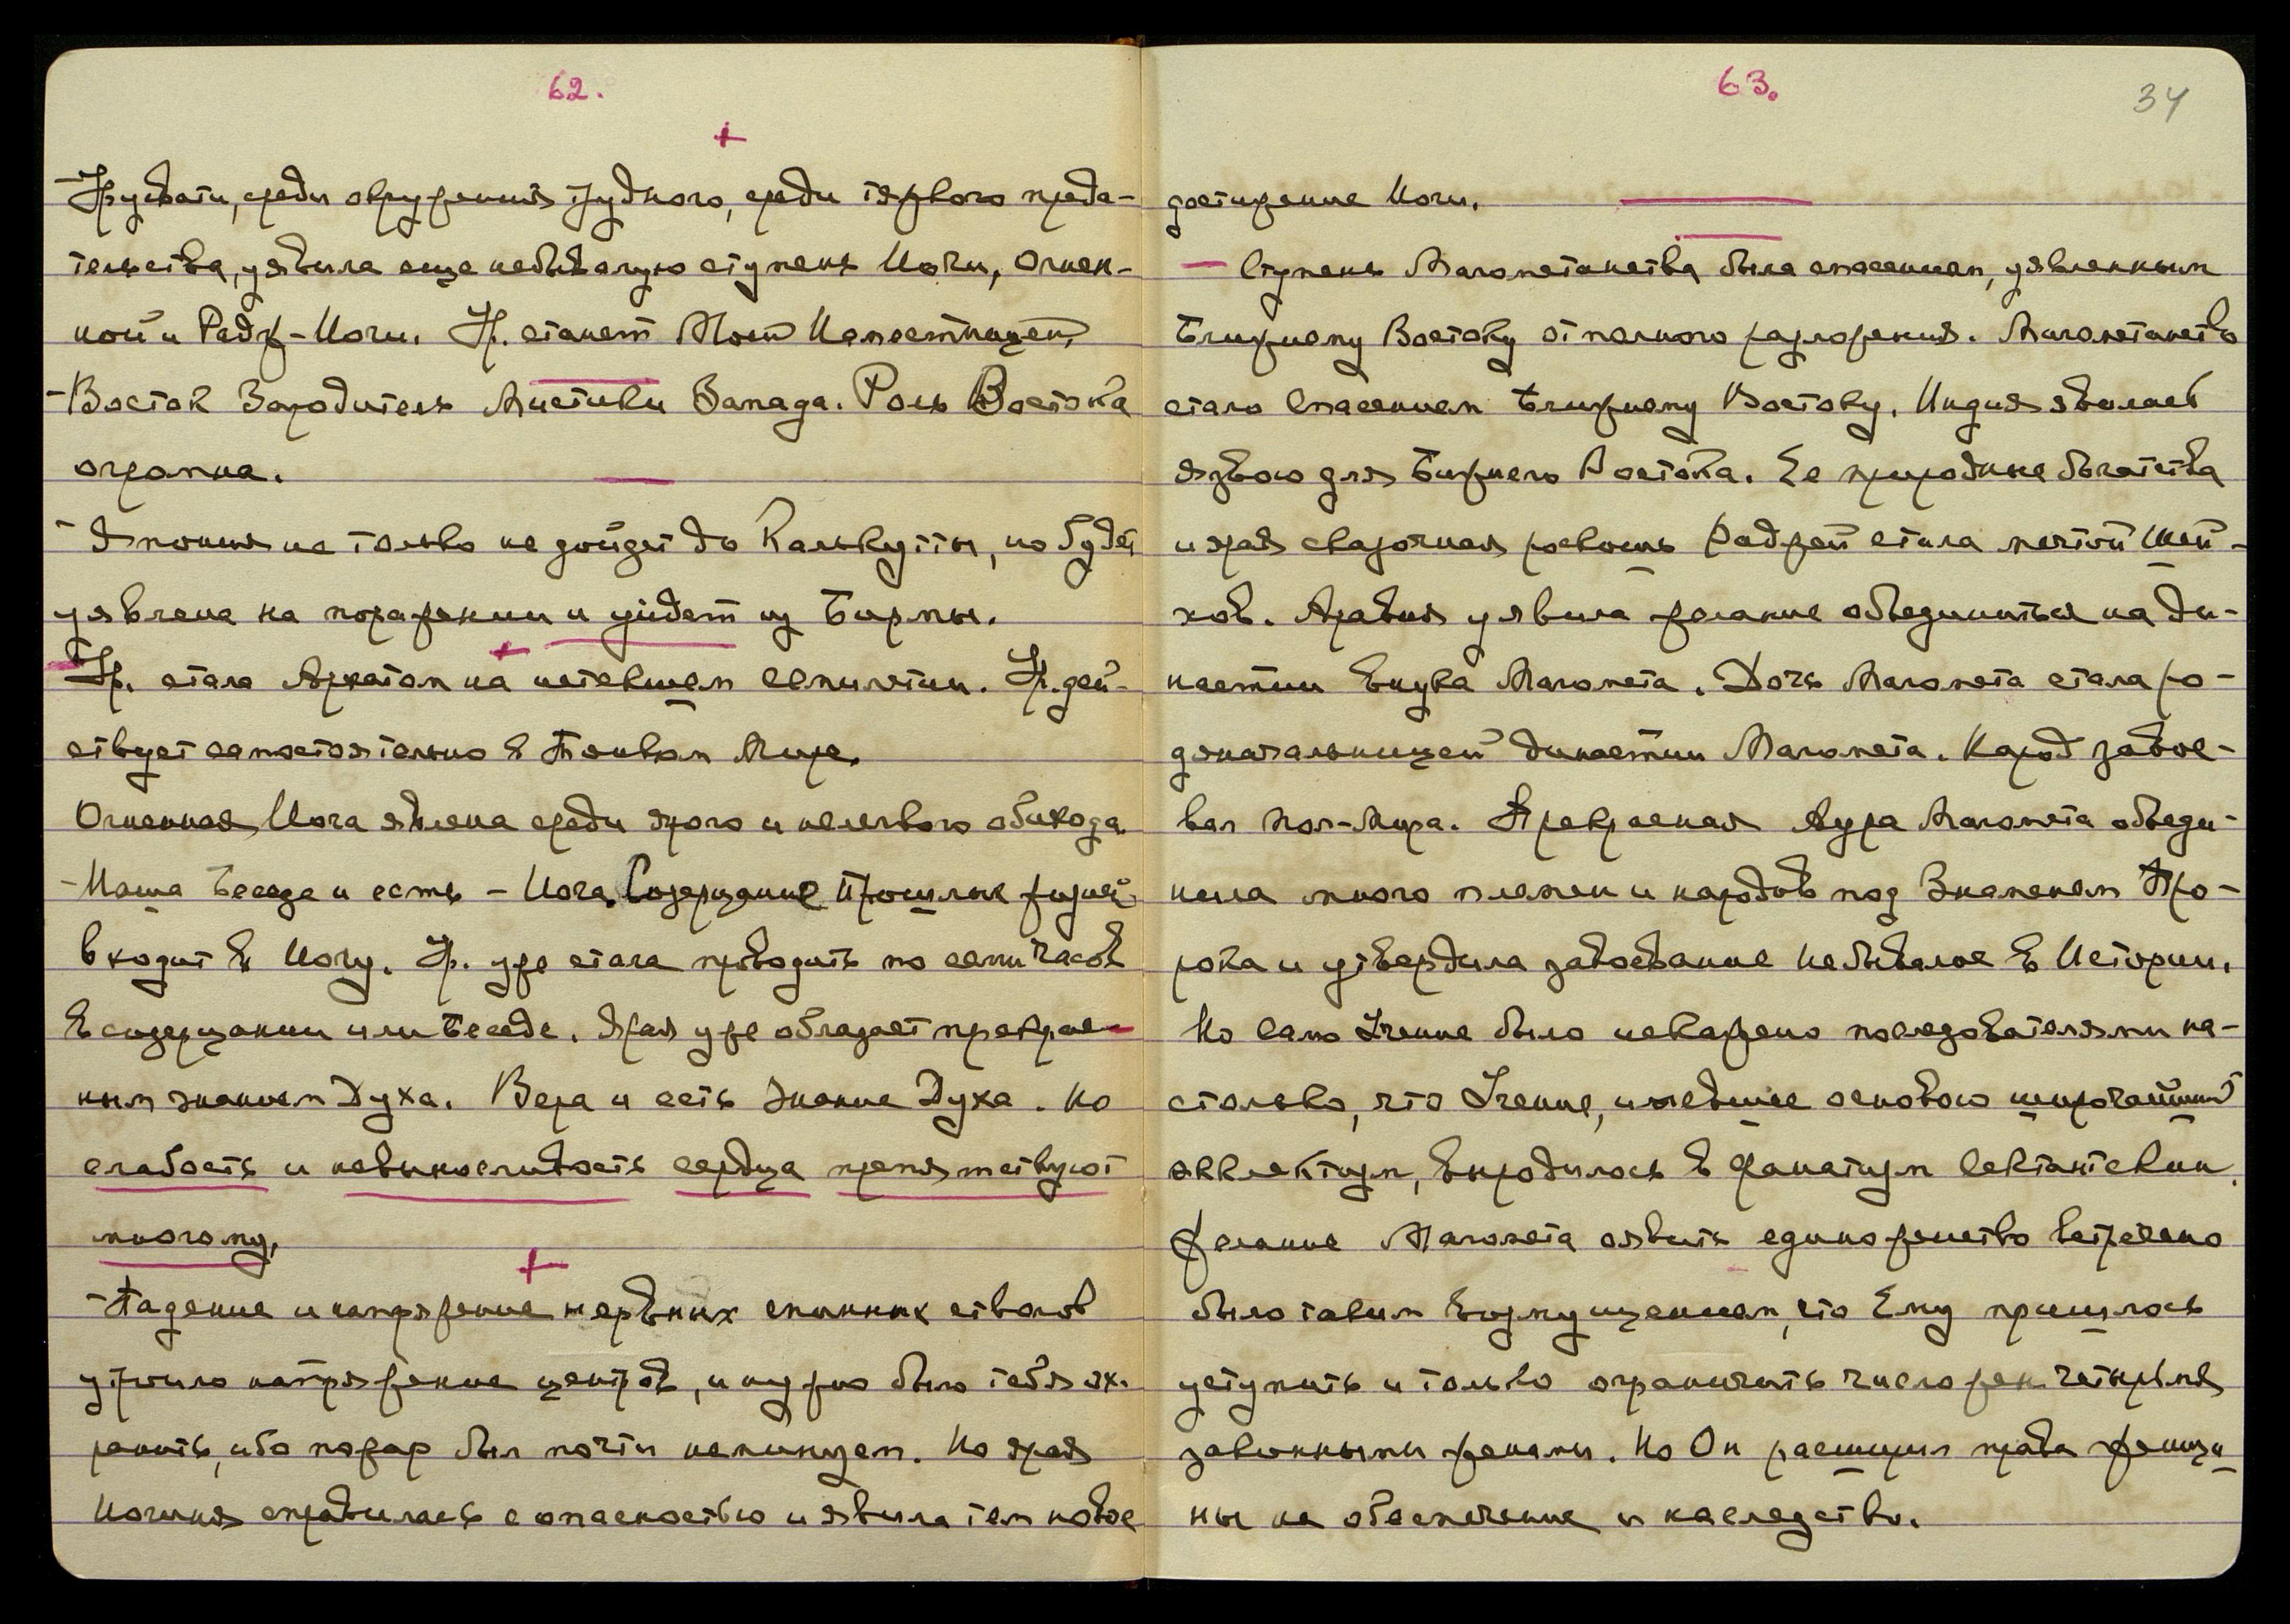 62.
- Урусвати, среди окружения трудного, среди тяжкого преда-
тельства, явила еще небывалую ступень Йоги, Огнен-
ной и Радж-Йоги. Ур. станет Моей Наместницей.
- Восток Зародитель Мистики Запада. Роль Востока
огромна.
- Япония не только не дойдет до Калькутты, но будет
уявлена на поражении и уйдет из Бирмы.
Ур. стала Архатом на истекшем семилетии. Ур. дей-
ствует самостоятельно в Тонком Мире.
Огненная Йога явлена среди ярого и нелегкого обихода.
- Наша Беседа и есть - Йога. Созерцание Прошлых жизней
входит в Йогу. Ур. уже стала проводить по семи часов
в созерцании или Беседе. Ярая уже обладает прекрас-
ным знанием Духа. Вера и есть Знание Духа. Но
слабость и невыносливость сердца препятствуют
многому.
- Падение и напряжение нервных спинных стволов
утроило напряжение центров, и нужно было тебя ох-
ранить, ибо пожар был почти неминуем. Но ярая
Йогиня справилась с опасностью и явила тем новое
63.
34
достижение Йоги.
- Ступень Магометанства была спасением, уявленным
Ближнему Востоку от полного разложения. Магометанство
стало Спасением Ближнему Востоку. Индия явилась
язвою для Ближнего Востока. Ее природные богатства
и ярая сказочная роскошь Раджей стала мечтой Шей-
хов. Аравия уявила желание объединиться на Ди-
настии Внука Магомета. Дочь Магомета стала ро-
доначальницей Династии Магомета. Народ завое-
вал пол-Мира. Прекрасная Аура Магомета объеди-
нила много племен и народов под Знаменем Про-
рока и утвердила завоевание небывалое в Истории.
Но само Учение было искажено последователями на-
столько, что Учение, имевшее основою широчайший
эклектизм, выродилось в фанатизм Сектантский.
Желание Магомета явить единоженство встречено
было таким возмущением, что Ему пришлось
уступить и только ограничить число жен четырьмя
законными женами. Но Он расширил права женщи-
ны на обеспечение и наследство.